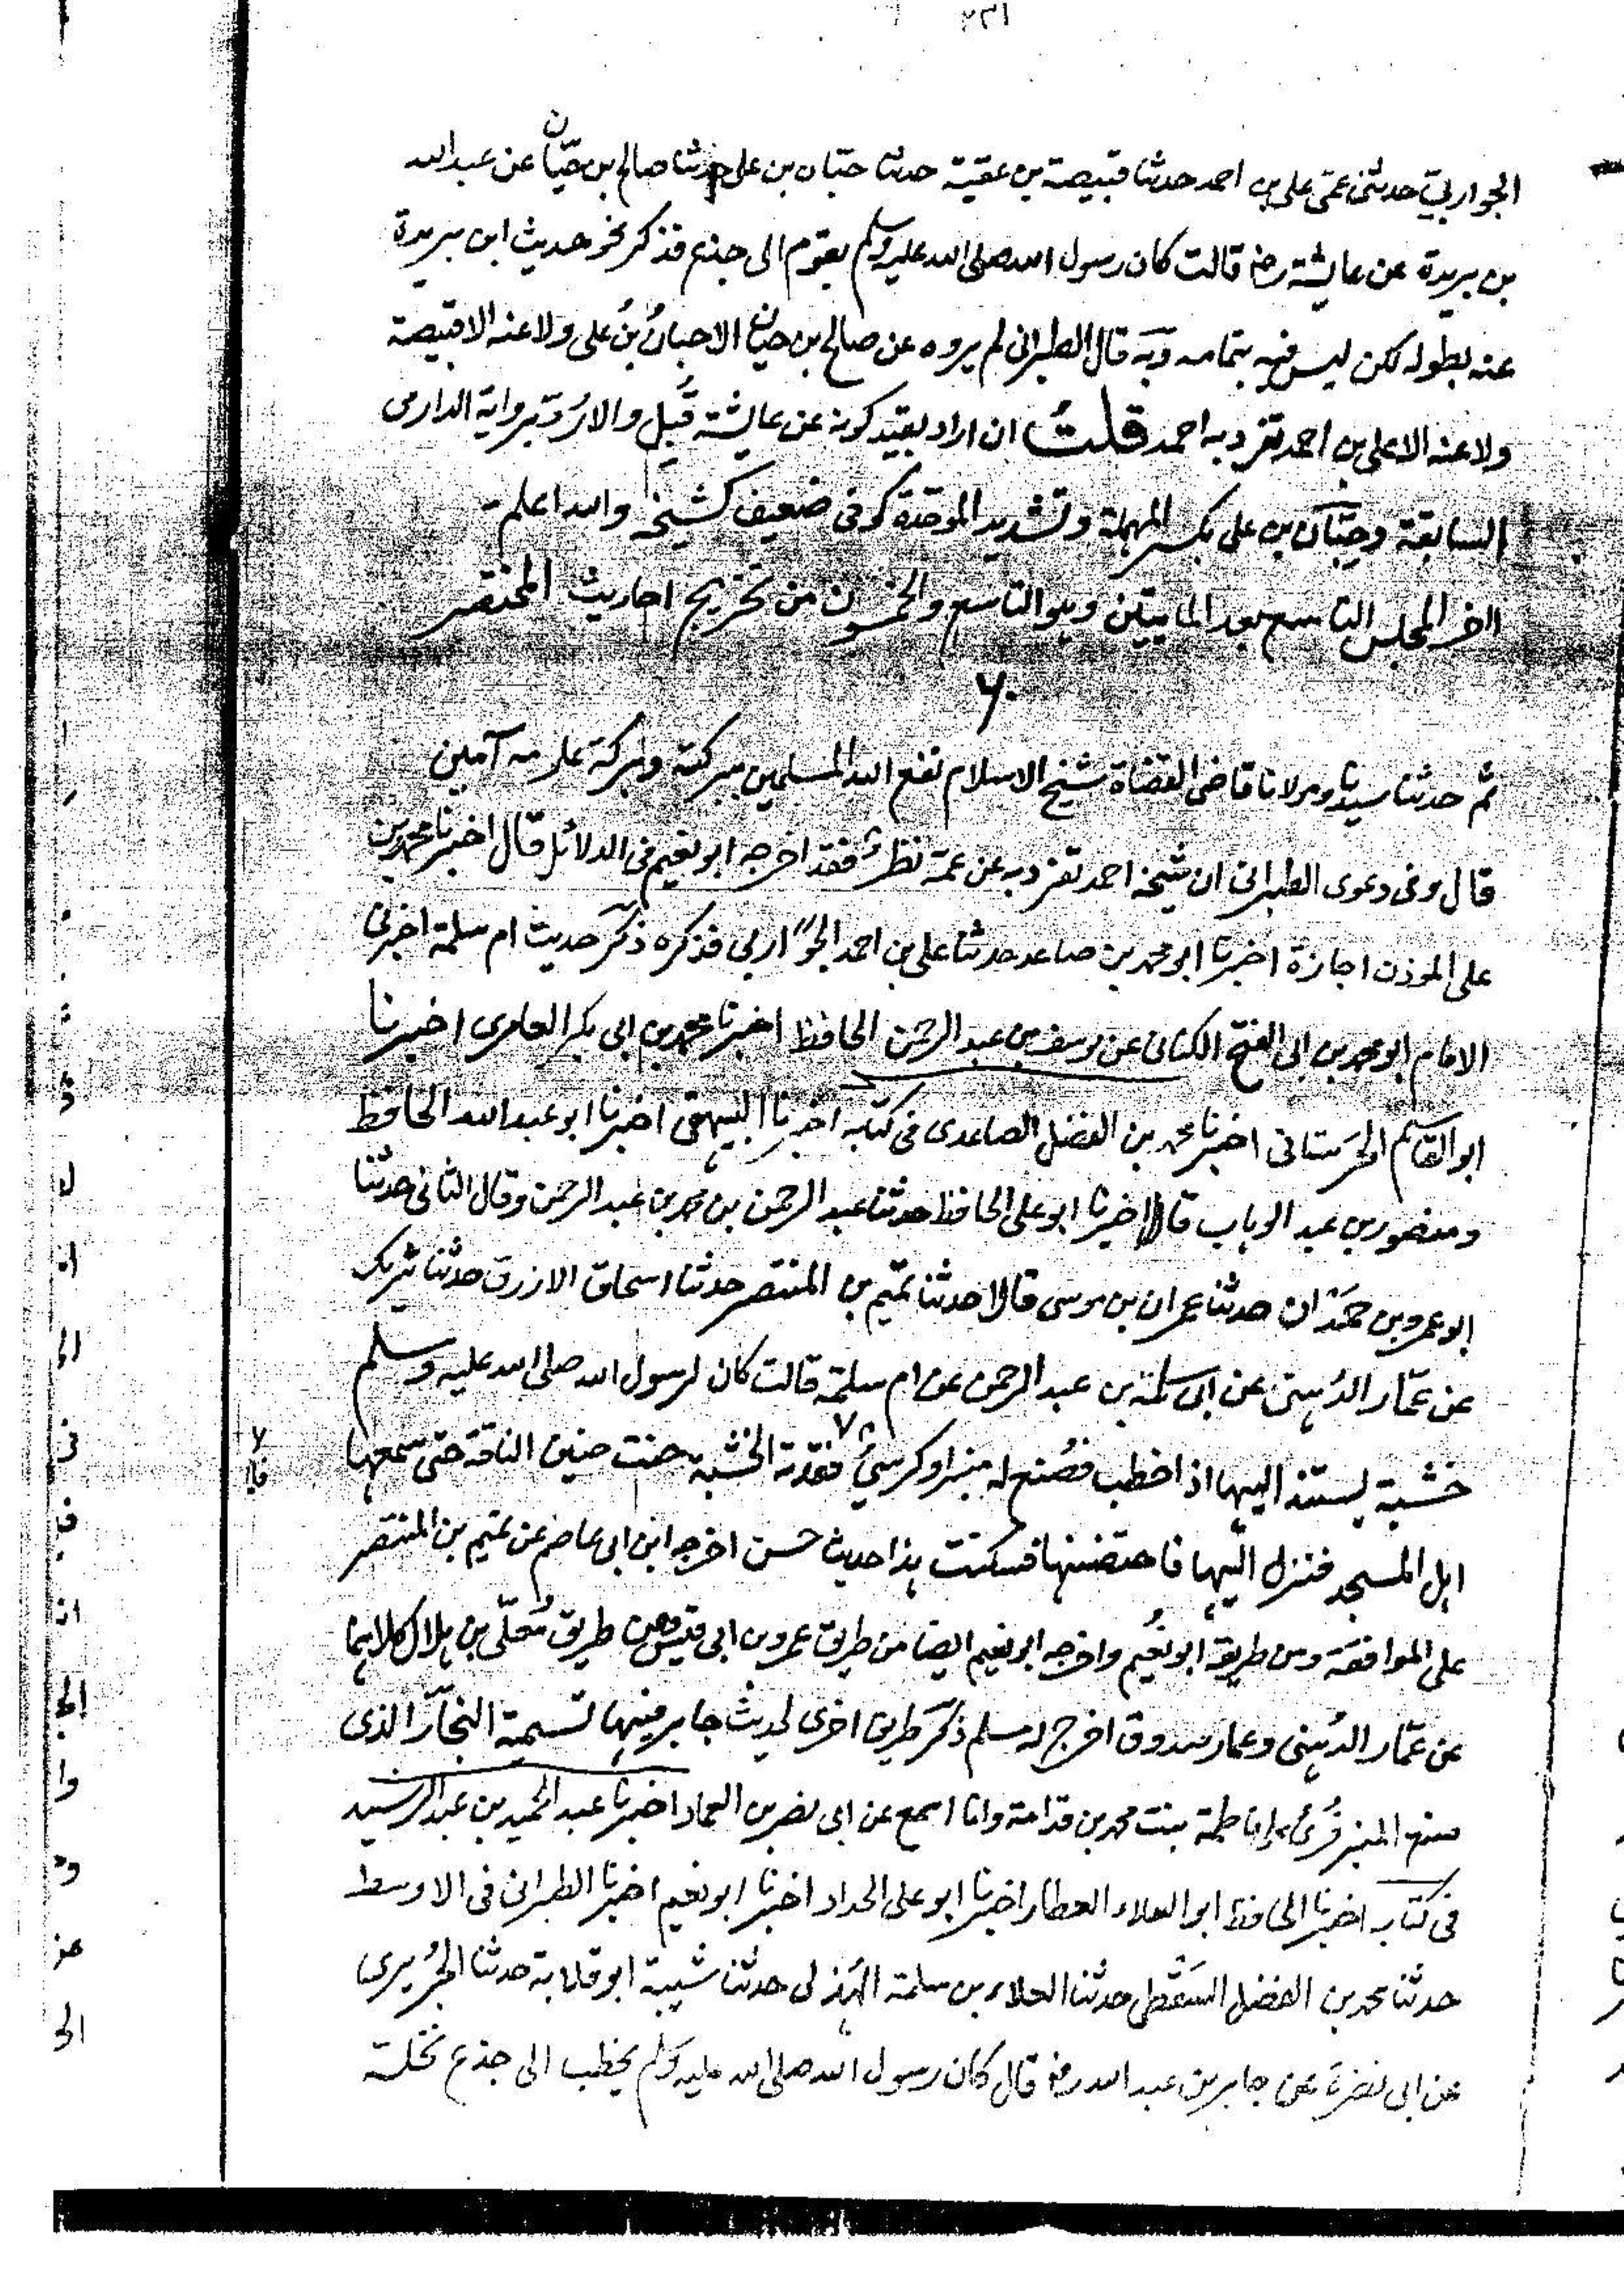 ٢٣١
الجواربي حدثني عمي علي بن احمد حدثنا قبيصة بن عقبة حدثنا حبان بن علي حدثنا صالح بن حيان عن عبد الله
بن بريدة عن عايشة رضـ قالت كان رسول الله صلى الله عليه وسلم يقوم الى جذع فذكر نحو حديث ابن بريدة
عنه بطوله لكن ليس فيه بتمامه وبه قال الطبراني لم يروه عن صالح بن حيان الا حبانُ بنُ علي ولا عنه الا قبيصة
ولا عنه الا علي بن احمد تفرد به احمد قلتُ ان اراد بقيد كونه عن عايشة قُبِل والا رُدّ برواية الدارمي
السابقة وحِبّان بن علي بكسر المهملة وتشديد الموحّدة كوفي ضعيف كشيخه والله اعلم
اخر المجلس التاسع بعد المايتين وهو التاسع والخمسون من تخريج احاديث المختصر
٦٠
ثم حدثنا سيدنا ومولانا قاضي القضاة شيخ الاسلام نفع الله المسلمين ببركته وبركة علومه آمين
قال وفي دعوى الطبراني ان شيخه احمد تفرد به عن عمه نظرٌ فقد اخرجه ابو نعيم في الدلائل قال اخبرنا محمد بن
علي الموذن اجازة اخبرنا ابو محمد بن صاعد حدثنا علي بن احمد الجواربي فذكره ذكر حديث ام سلمة اخبرني
الامام ابو محمد بن ابي الفتح الكناني عن يوسف بن عبد الرحمن الحافظ اخبرنا محمد بن ابي بكر العامري اخبرنا
ابو القاسم الحرستاني اخبرنا محمد بن الفضل الصاعدي في كتابه اخبرنا البيهقي اخبرنا ابو عبد الله الحافظ
ومنصور بن عبد الوهاب قالا اخبرنا ابو علي الحافظ حدثنا عبد الرحمن بن محمد بن عبد الرحمن وقال الثاني حدثنا
ابو عمرو بن حمدان حدثنا عمران بن موسى قالا حدثنا تميم بن المنتصر حدثنا اسحاق الازرق حدثنا شريك
عن عمّار الدُهني عن ابي سلمة بن عبد الرحمن عن ام سلمة قالت كان لرسول الله صلى الله عليه وسلم
خشبة يستند اليها اذا خطب فصُنع له منبر او كرسيٌ فقدته الخشبة حنت حنين الناقة حتى سمعها
اهل المسجد فنزل اليها فاحتضنها فسكنت هذا حديث حسن اخرجه ابن ابي عاصم عن تميم بن المنتصر
على الموافقة ومن طريقه ابو نُعيم واخرجه ابو نعيم ايضا من طريق عمرو بن ابي قيس ومن طريق مُعلّى بن هلال كلاهما
عن عمّار الدُهني وعمار صدوق اخرج له مسلم ذكر طريق اخرى لحديث جابر فيها تسمية النجّار الذي
صنع المنبر قُرئ على فاطمة بنت محمد بن قدامة وانا اسمع عن ابي نصر بن العماد اخبرنا عبد الحميد بن عبد الرشيد
في كتابه اخبرنا الحافظ ابو العلاء العطار اخبرنا ابو علي الحداد اخبرنا ابو نعيم اخبرنا الطبراني في الاوسط
حدثنا محمد بن الفضل السَقَطي حدثنا العلاء بن سلمة الهُذلي حدثنا شيبة ابو قلابة حدثنا الجُريري
عن ابي نضرة عن جابر بن عبد الله رضـ قال كان رسول الله صلى الله عليه وسلم يخطب الى جذع نخلة